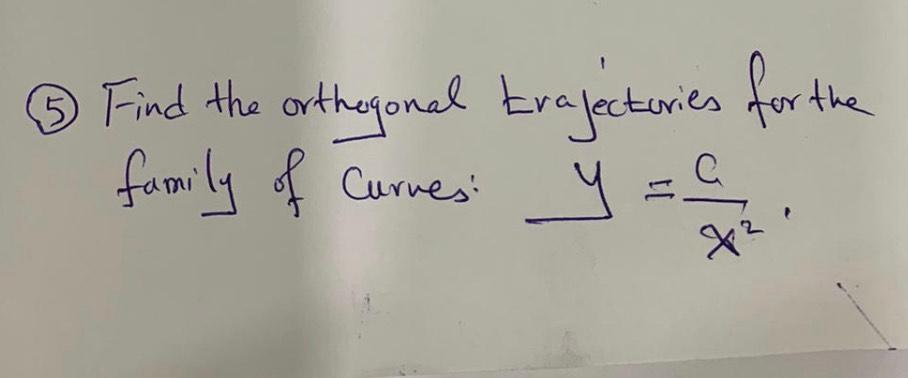 ⑤ Find the orthogonal trajectories for the
family of Curves: y = C/x².